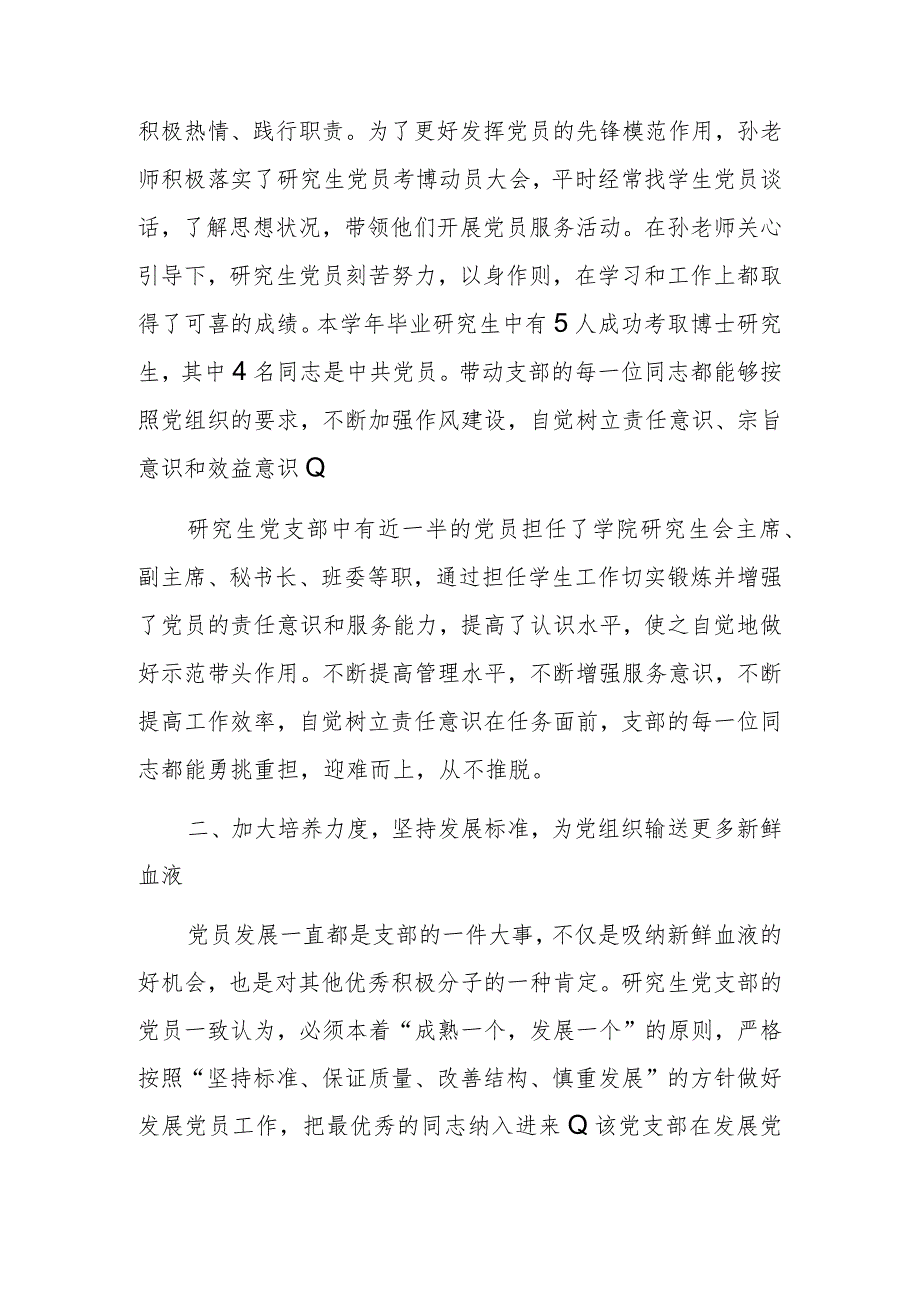 积极热情、践行职责。为了更好发挥党员的先锋模范作用，孙老
师积极落实了研究生党员考博动员大会，平时经常找学生党员谈
话，了解思想状况，带领他们开展党员服务活动。在孙老师关心
引导下，研究生党员刻苦努力，以身作则，在学习和工作上都取
得了可喜的成绩。本学年毕业研究生中有5人成功考取博士研究
生，其中4名同志是中共党员。带动支部的每一位同志都能够按
照党组织的要求，不断加强作风建设，自觉树立责任意识、宗旨
意识和效益意识Q
研究生党支部中有近一半的党员担任了学院研究生会主席、
副主席、秘书长、班委等职，通过担任学生工作切实锻炼并增强
了党员的责任意识和服务能力，提高了认识水平，使之自觉地做
好示范带头作用。不断提高管理水平，不断增强服务意识，不断
提高工作效率，自觉树立责任意识在任务面前，支部的每一位同
志都能勇挑重担，迎难而上，从不推脱。
二、加大培养力度，坚持发展标准，为党组织输送更多新鲜
血液
党员发展一直都是支部的一件大事，不仅是吸纳新鲜血液的
好机会，也是对其他优秀积极分子的一种肯定。研究生党支部的
党员一致认为，必须本着“成熟一个，发展一个”的原则，严格
按照“坚持标准、保证质量、改善结构、慎重发展”的方针做好
发展党员工作，把最优秀的同志纳入进来Q该党支部在发展党